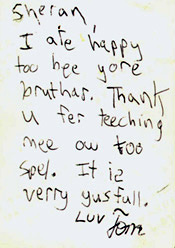 Sheran,
I ate happy
too hee yore
bruthar. Thank
u fer teeching
mee ow too
Spel. It iz
verry yusfull.
Luv Tom